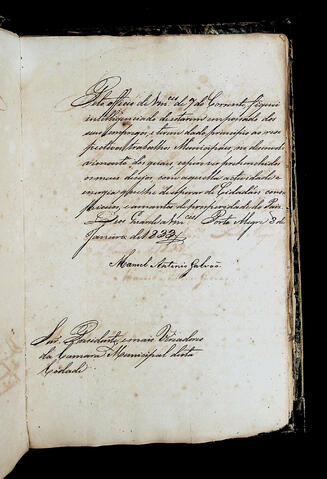 Pelo officio de Vm.ces de 7 do Corrente, fiquei
intelligenciado de estarem empossados dos
seus empregos, e terem dado principio aos res
pectivos trabalhos Municipaes, no desenvol
vimento dos quaes espero ver prehenchidos
os meus dezejos com aquella actividade e
energia que lhes de esperar de Cidadãos, cons
picuos, e amantes da prosperidade do Paiz.
Deos Guarde a Vm.ces Porto Alegre 8 de
Janeiro de 1833
Manoel Antonio Galvão
Snr.s Presidente, e mais Vereadores
da Camara Municipal desta
Cidade